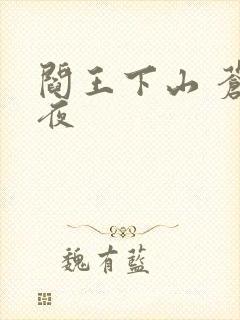 閻王下山 蒼
夜
魏有藍